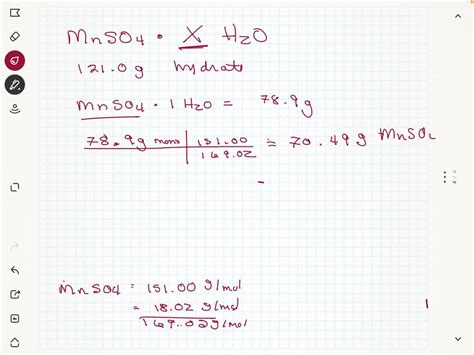 MnSO4 • X H2O
121.0g hydrate
MnSO4 • 1 H2O = 78.9g
78.9g mono | 151.00 = 70.49g MnSO4
169.02
MnSO4 = 151.00 g/mol
= 18.02 g/mol
169.02 g/mol